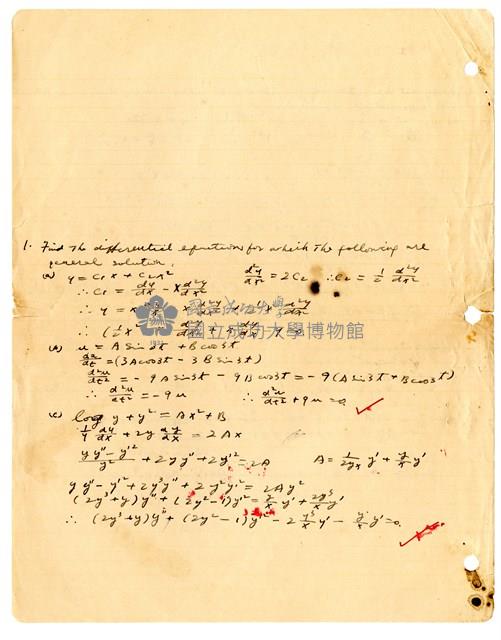 1. Find the differential equations for which the following are
general solution.
(a) y = c₁x + c₂x² d²y/dx² = 2c₂ ∴ c₂ = 1/2 d²y/dx²
∴ c₁ = dy/dx - x d²y/dx²
∴ y = x
國立成功大學博物館
(b) u = A sin 3t + B cos 3t
du/dt = (3A cos 3t - 3B sin 3t)
d²u/dt² = -9A sin 3t - 9B cos 3t = -9(A sin 3t + B cos 3t)
∴ d²u/dt² = -9u ∴ d²u/dt² + 9u = 0
(c) log y + y² = Ax² + B
1/y dy/dx + 2y dy/dx = 2Ax
(yy'' - y'²)/y² + 2yy'' + 2y'² = 2A A = 1/(2yx) y' + y/x y'
yy'' - y'² + 2y³y'' + 2y²y'² = 2Ay²
(2y³+y)y'' + (2y²-1)y'² = y/x y' + 2y³/x y'
∴ (2y³+y)y'' + (2y²-1)y'² - 2 y³/x y' - y/x y' = 0